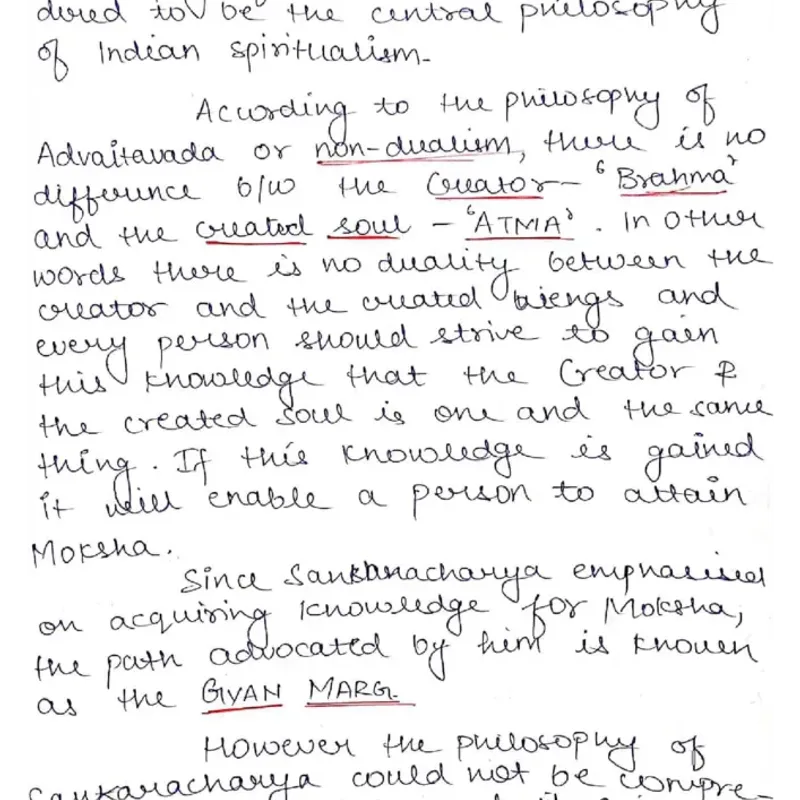 dered to be the central philosophy
of Indian spiritualism.
According to the philosophy of
Advaitavada or non-dualism, there is no
difference b/w the Creator - 'Brahma'
and the created soul - 'ATMA'. In other
words there is no duality between the
creator and the created biengs and
every person should strive to gain
this knowledge that the Creator &
the created soul is one and the same
thing. If this knowledge is gained
it will enable a person to attain
Moksha.
Since Sankaracharya emphasised
on acquiring knowledge for Moksha,
the path advocated by him is known
as the GIYAN MARG.
However the philosophy of
Sankaracharya could not be compre-